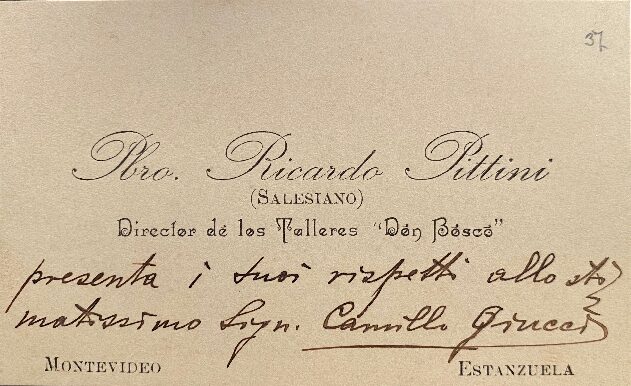 37
Pbro. Ricardo Pittini
(SALESIANO)
Director de los Talleres "Don Bosco"
presenta i suoi rispetti allo sti
matissimo Sign. Camillo Giucci
MONTEVIDEO ESTANZUELA